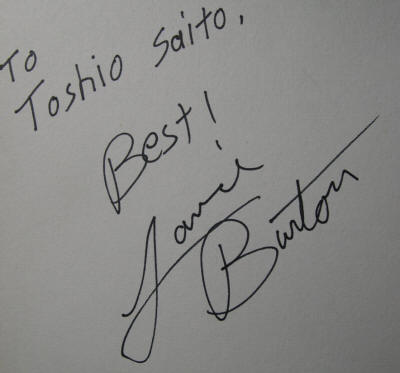 To
Toshio Saito,
Best!
Burton